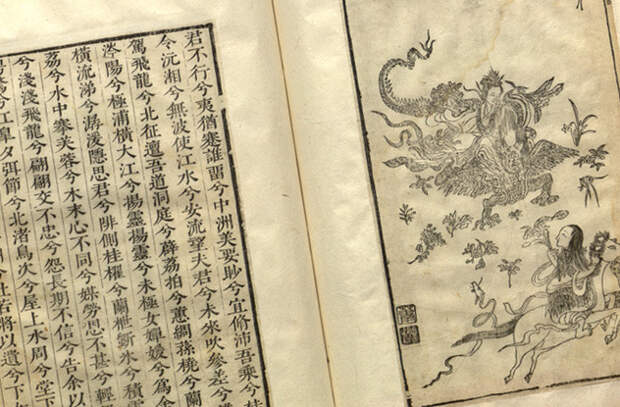 君不行兮夷猶蹇誰畱兮中洲美要眇兮宜脩沛吾乘兮桂
令沅湘兮無波使江水兮安流望夫君兮未來吹參差兮
駕飛龍兮北征邅吾道洞庭兮薜荔拍兮蕙綢蓀橈兮蘭
涔陽兮極浦橫大江兮揚靈揚靈兮未極女嬋媛兮為余
橫流涕兮潺湲隱思君兮陫側桂櫂兮蘭枻斲氷兮積雪
荔兮水中搴芙蓉兮木末心不同兮媒勞恩不甚兮輕
兮淺淺飛龍兮翩翩交不忠兮怨長期不信兮告余以
兮江皐夕弭節兮北渚鳥次兮屋上水周兮堂下
兮杜若將以遺兮下